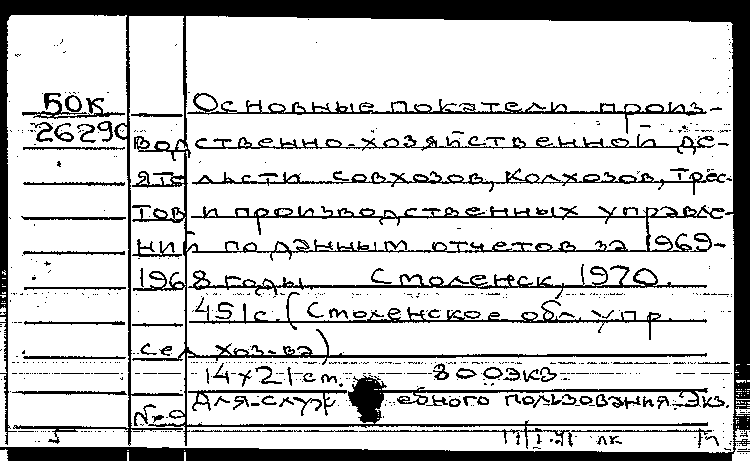 50к Основные покатели произ-
26290 водственно-хозяйственной де-
ятельсти совхозов, колхозов, трес-
тов и производственных управле-
ний по данным отчетов за 1969-
1968 годы. Смоленск, 1970.
451с. (Смоленское обл. упр.
сел. хоз-ва)
14х21 см. 800экз.
Для служебного пользования. Экз.
№9